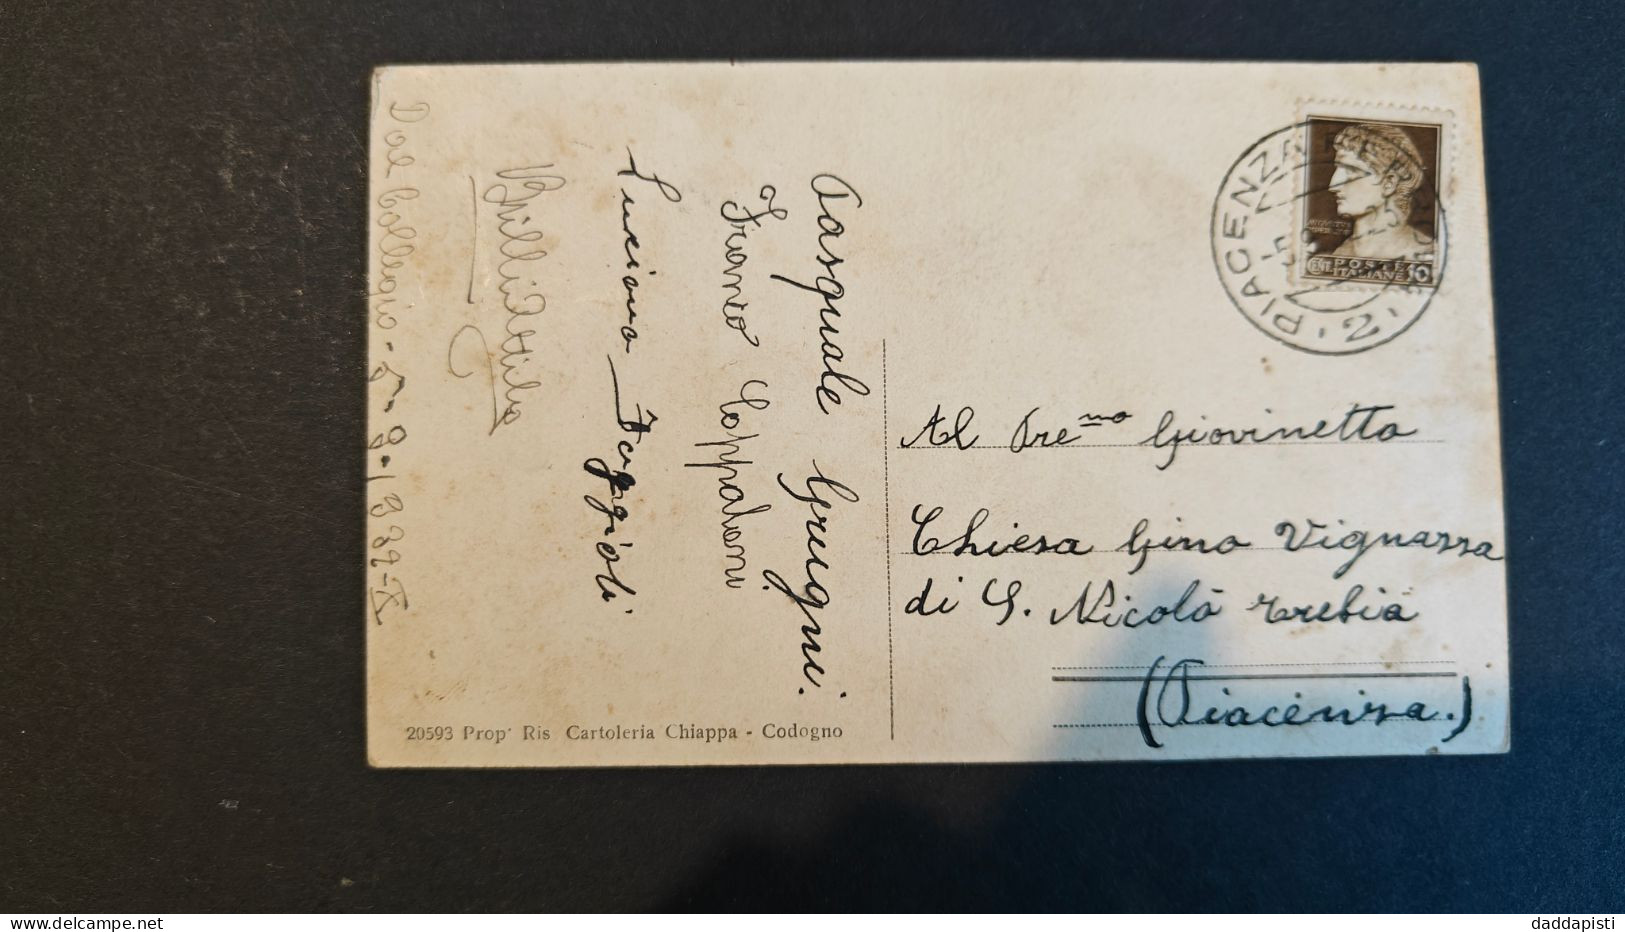 Dal Collegio - 5-9-1932-X
Brilli Attilio
Luciano Faggioli
Franco Coppaloni
Pasquale Grugni.
20593 Prop. Ris Cartoleria Chiappa - Codogno
PIACENZA
2
POSTE
ITALIANE
CENT
10
Al Pre.mo Giovinetto
Chiesa Gino Vignazza
di S. Nicolò Trebia
(Piacenza.)
delcampe.net
daddapisti